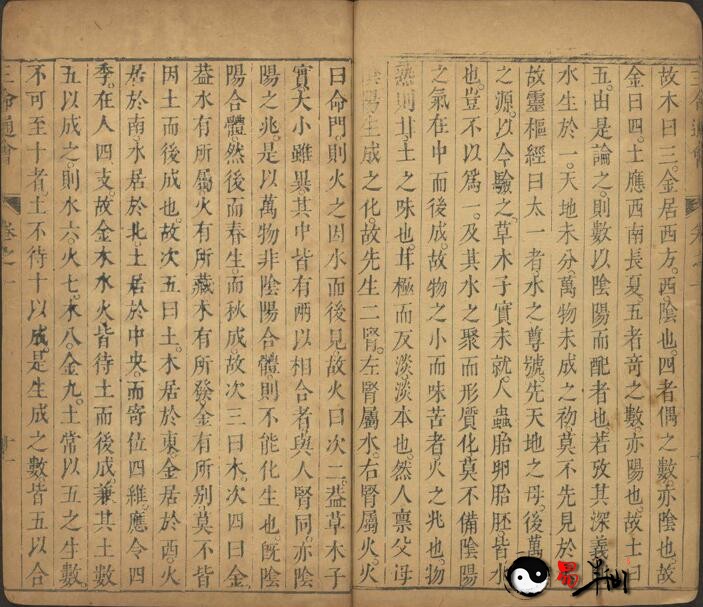 故木曰三。金居西方。西陰也。四者偶之數亦陰也。故
金曰四。土應西南長夏。五者奇之數。亦陽也。故土曰
五。由是論之。則數以陰陽而配者也。若攷其深義
水生於一。天地未分。萬物未成之初。莫不先見於
故靈樞經曰太一者。水之尊號。先天地之母。後萬
之源。以今驗之。草木子實未就。人蟲胎卵胎胚皆水
也。豈不以爲一。及其水之聚而形質化。莫不備陰陽
之氣在中而後成。故物之小而味苦者。火之兆也。物
熟則甘。土之味也。甘極而反淡。淡本也。然人禀父母
陰陽生成之化。故先生二腎。左腎屬水。右腎屬火。火
曰命門。則火之因水而後見。故火曰次二。蓋草木子
實。大小雖異。其中皆有兩以相合者。與人腎同。亦陰
陽之兆。是以萬物非陰陽合體。則不能化生也。旣陰
陽合體。然後而春生。而秋成。故次三曰木。次四曰金
蓋水有所屬。火有所藏。木有所發。金有所別。莫不皆
因土而後成也。故次五曰土。木居於東。金居於西。火
居於南。水居於北。土居於中央。而寄位四維。應令四
季。在人四支。故金木水火皆待土而後成。兼其土數
五以成之。則水六。火七。木八。金九。土常以五之生數
不可至十者。土不待十以成。是生成之數。皆五以合
三命通會
卷之一
十一